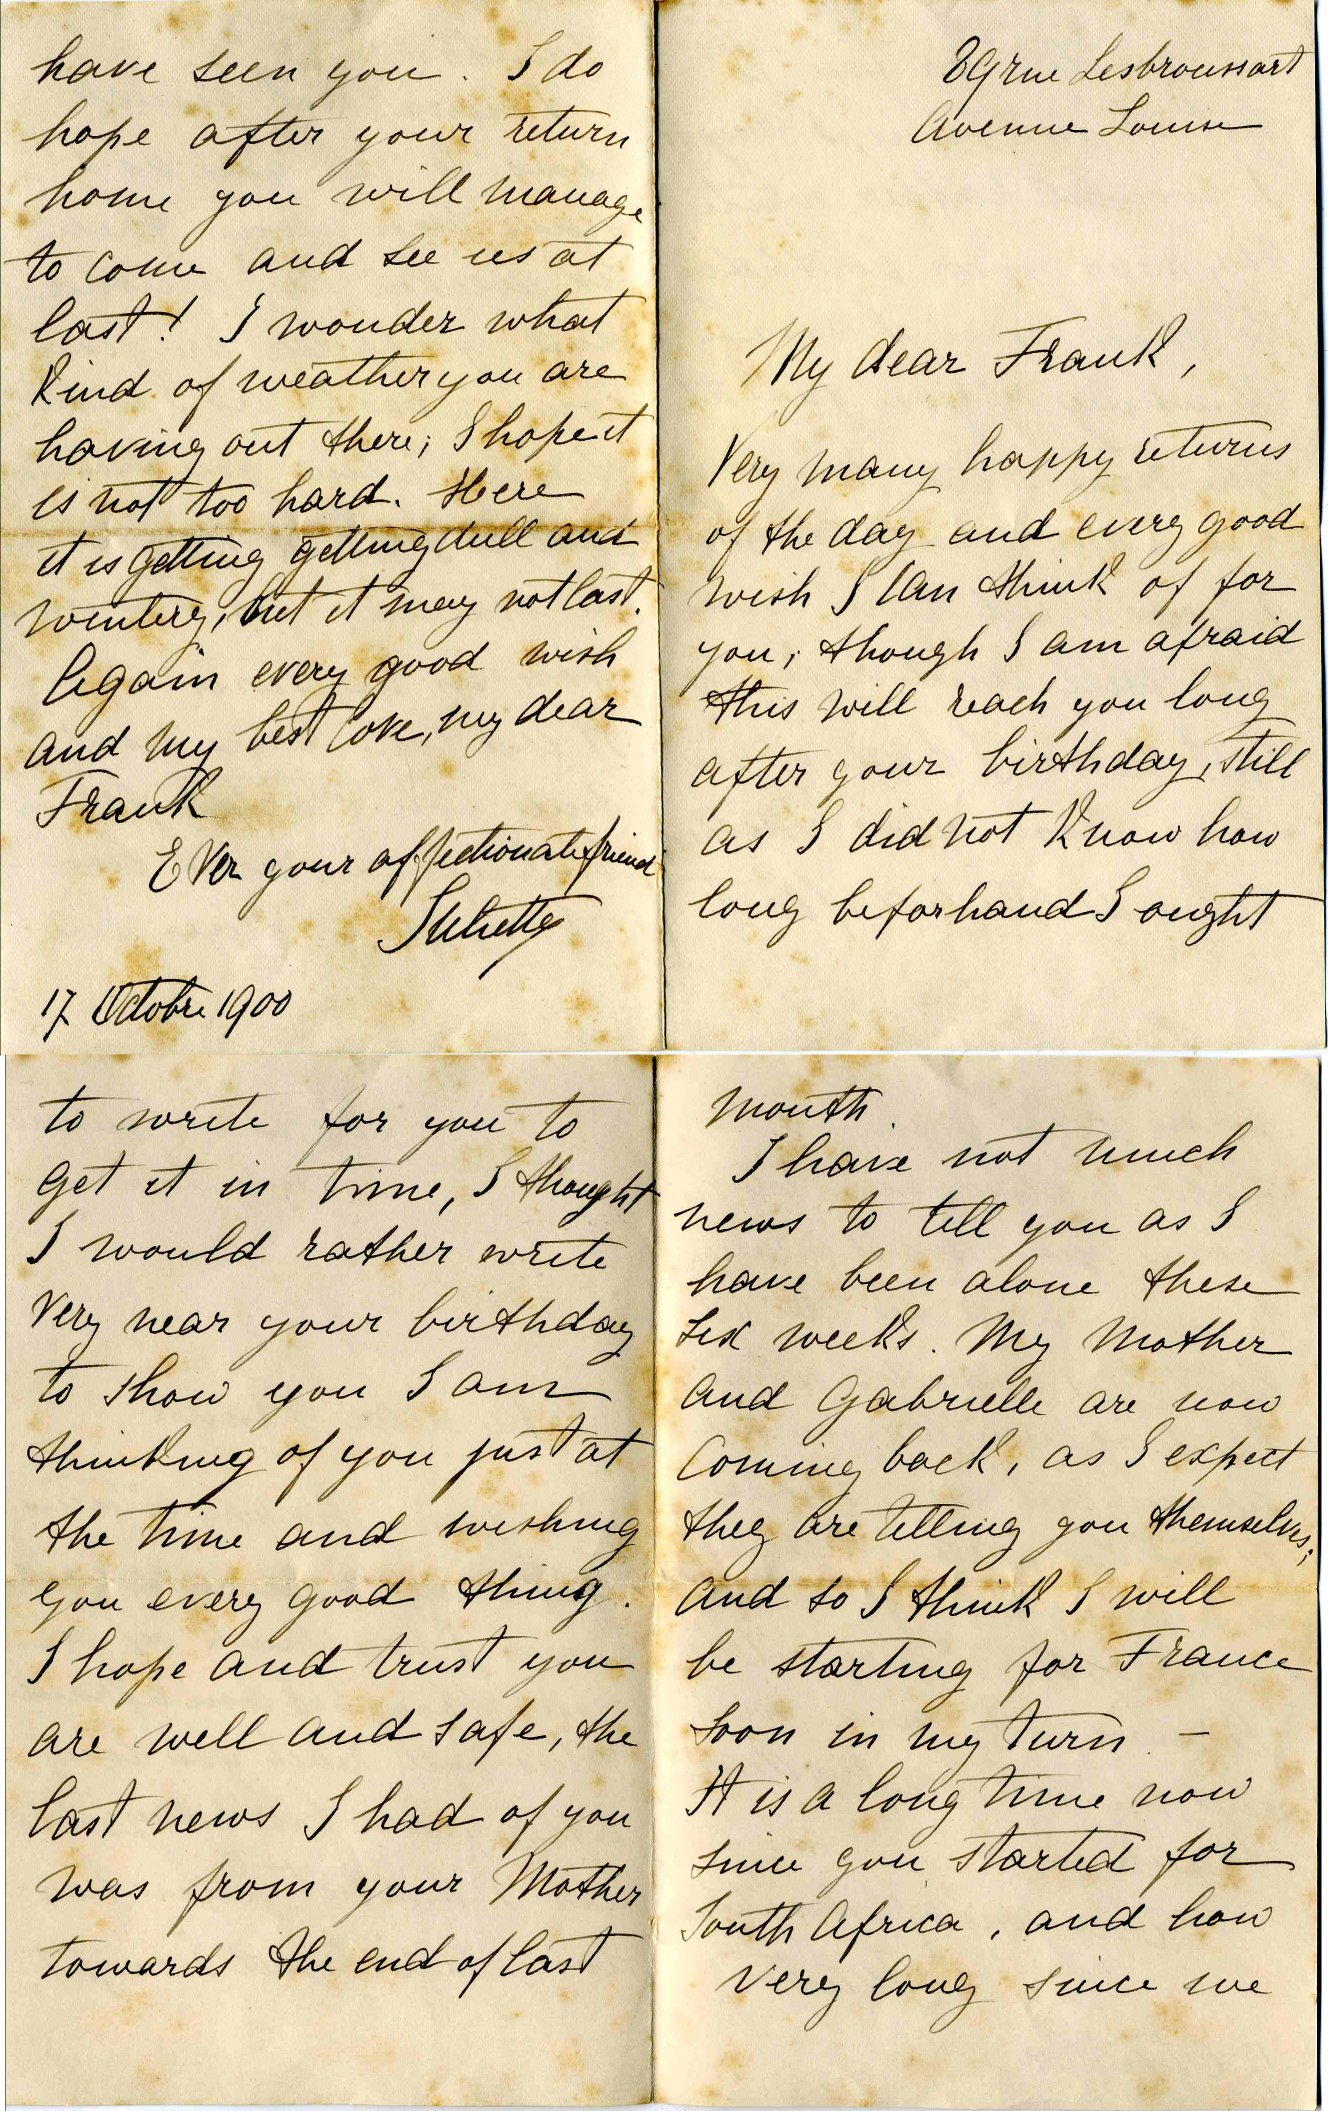 89 rue Lesbroussart
Avenue Louise
My dear Frank,
Very many happy returns
of the day and every good
wish I can think of for
you; though I am afraid
this will reach you long
after your birthday, still
as I did not know how
long beforhand I ought
to write for you to
get it in time, I thought
I would rather write
very near your birthday
to show you I am
thinking of you just at
the time and wishing
you every good thing.
I hope and trust you
are well and safe, the
last news I had of you
was from your Mother
towards the end of last
month.
I have not much
news to tell you as I
have been alone these
six weeks. My Mother
and Gabrielle are now
coming back, as I expect
they are telling you themselves;
and so I think I will
be starting for France
soon in my turn. —
It is a long time now
since you started for
South Africa, and how
very long since we
have seen you. I do
hope after your return
home you will manage
to come and see us at
last! I wonder what
kind of weather you are
having out there; I hope it
is not too hard. Here
it is getting getting dull and
wintery, but it may not last.
Again every good wish
and my best love, my dear
Frank
Ever your affectionate friend
Juliette
17 Octobre 1900